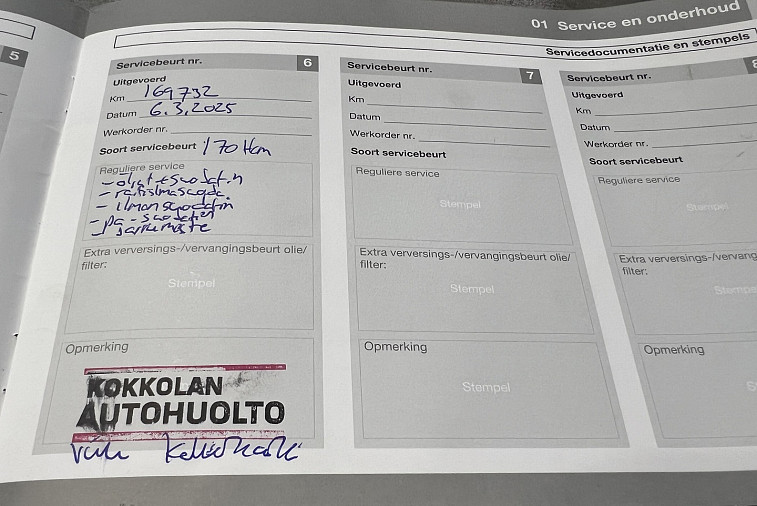 01 Service en onderhoud
Servicedocumentatie en stempels
5
Servicebeurt nr. 6
Uitgevoerd
Km 169732
Datum 6.3.2025
Werkorder nr.
Soort servicebeurt 170 tkm
Reguliere service
- öljyt + suodatin
- raitisilmasuoda.
- ilmansuodatin
- pa-suodatin
- jarruneste
Extra verversings-/vervangingsbeurt olie/
filter:
Stempel
Opmerking
KOKKOLAN
AUTOHUOLTO
Servicebeurt nr. 7
Uitgevoerd
Km
Datum
Werkorder nr.
Soort servicebeurt
Reguliere service
Stempel
Extra verversings-/vervangingsbeurt olie/
filter:
Stempel
Opmerking
Stempel
Servicebeurt nr. 8
Uitgevoerd
Km
Datum
Werkorder nr.
Soort servicebeurt
Reguliere service
Stempel
Extra verversings-/vervang
filter:
Stempe
Opmerking
S